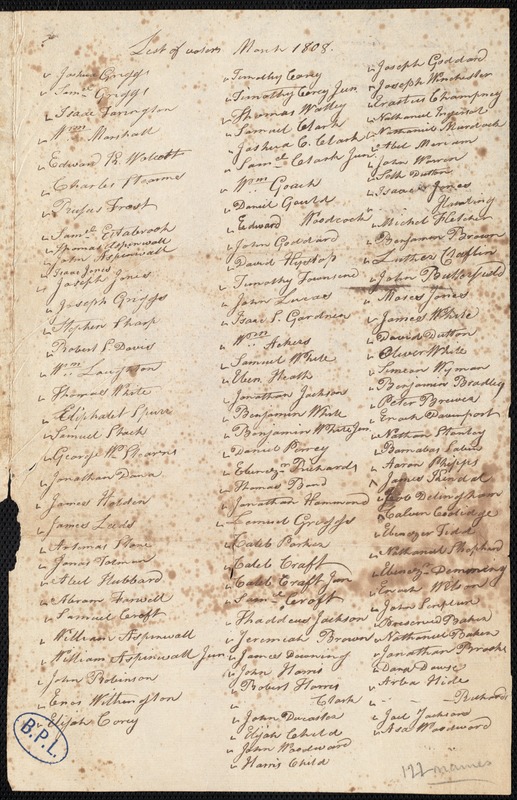 List of voters March 1808.
Joshua Griggs
Saml. Griggs
Isaac Farington
Wm. Marshall
Edwan R Wolcott
Charles Stearnes
Rufus Frost
Saml. Estabrook
Thomas Aspinwall
John Aspinwall
Isaac Jones
Joseph Jones
Joseph Griggs
Stephen Sharp
Robert S. Davis
Wm. Laughton
Thomas White
Eliphalet Spurr
Samuel Shack
George W. Stearns
Jonathan Dana
James Holden
James Leeds
Artemas Stone
Jonas Tolman
Abel Hubbard
Abram Farwell
Samuel Croft
William Aspinwall
William Aspinwall Jun
John Robinson
Enos Withington
Elijah Corey
Timothy Corey
Timothy Corey Jun
Thomas Watley
Samuel Clark
Joshua C. Clark
Saml. Clark Jun
Wm. Gooch
Daniel Gould
Edward Woodcock
John Goddard
David Hyslop
Timothy Townsend
John Lucas
Isaac S. Gardner
Wm. Ackers
Samuel White
Eben. Heath
Jonathan Jackson
Benjamin White
Benjamin White Jun
Daniel Perrey
Ebenezer Richards
Thomas Bond
Jonathan Hammond
Samuel Griggs
Caleb Parker
Caleb Craft
Caleb Craft Jun
Saml. Croft
Thaddeus Jackson
Jeremiah Brown
James Downing
John Harris
Robert Harris
Clark
John Ducaster
Elijah Child
John Woodward
Harris Child
Joseph Goddard
Joseph Winchester
Erastus Champney
Nathaniel Ingersol
Nathaniel Murdock
Abel Merriam
John Warren
Seth Dutton
Isaac Jones
Harting
Michel Fletcher
Benjamin Brown
Luther Claflin
John Butterfield
Moses Jones
James White
David Dutton
Oliver White
Simean Wyman
Benjamin Bradley
Peter Brewer
Enoch Davenport
Nathan Stanley
Barnabas
Aaron Phipps
James Kendal
Delingham
Calven Coolidge
Ebenezer Tidd
Nathaniel Shephard
Ebenezr. Demoning
Enoch Wilson
John Scripture
Preserved Baker
Nathaniel Baker
Jonathan Brooks
Dana Dowse
Arba Hide
Richards
Joel Jackson
Asa Woodward
B.P.L.
names